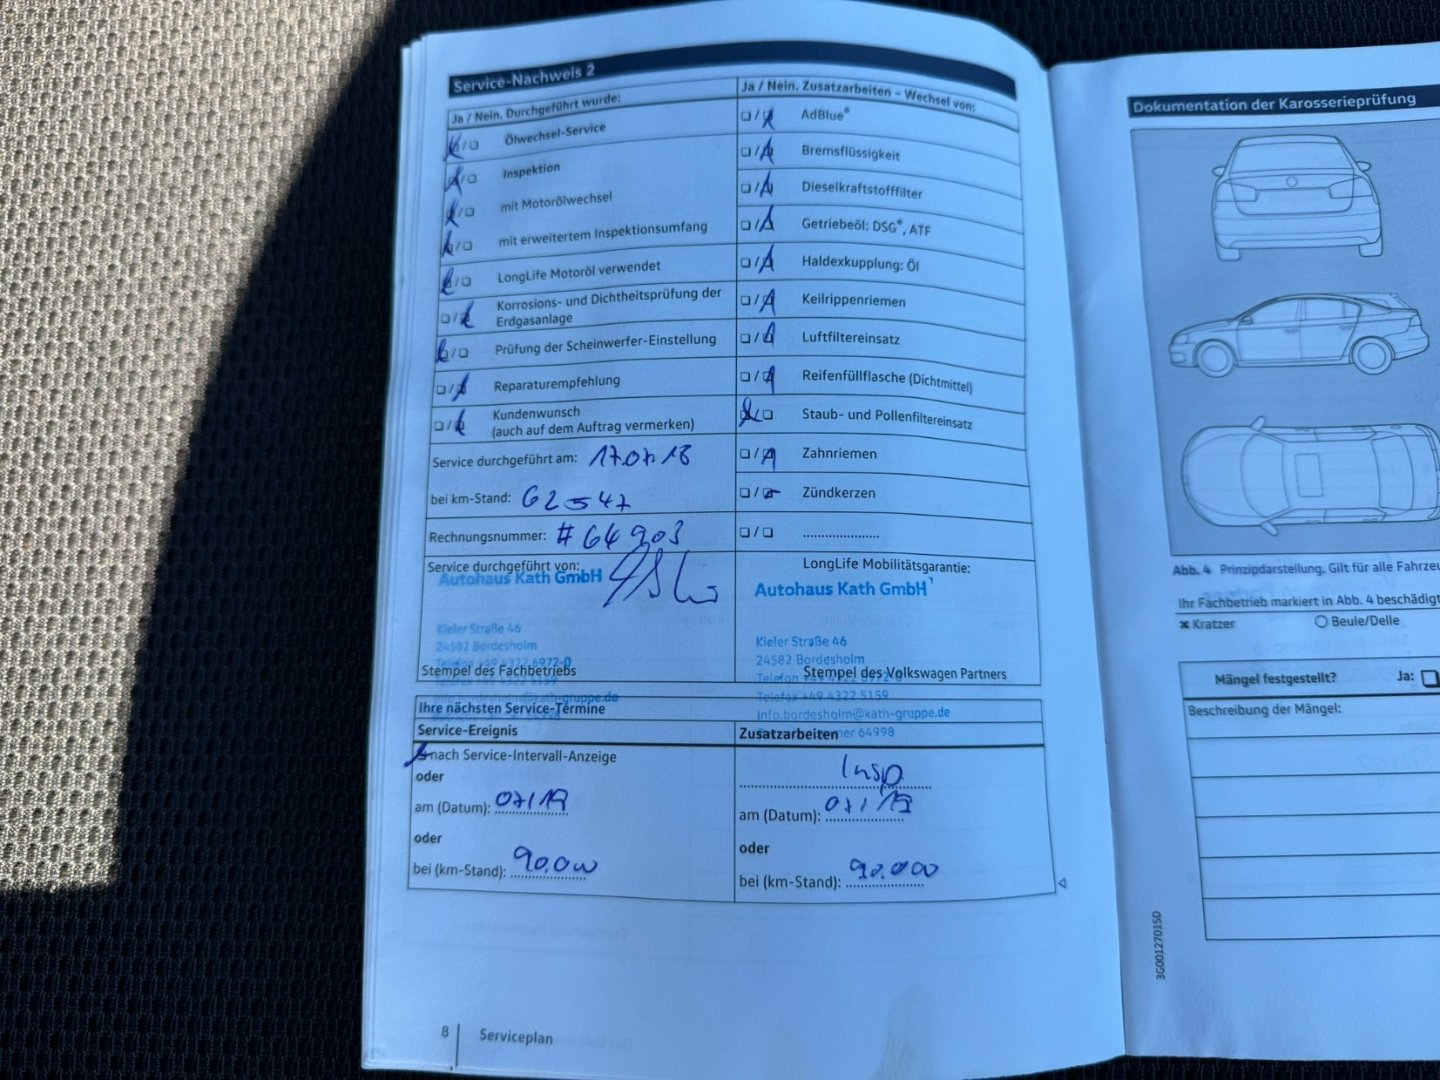 Service-Nachweis 2
Ja / Nein. Durchgeführt wurde:
Ölwechsel-Service
Inspektion
mit Motorölwechsel
mit erweitertem Inspektionsumfang
LongLife Motoröl verwendet
Korrosions- und Dichtheitsprüfung der
Erdgasanlage
Prüfung der Scheinwerfer-Einstellung
Reparaturempfehlung
Kundenwunsch
(auch auf dem Auftrag vermerken)
Service durchgeführt am: 17.07.18
bei km-Stand: 62547
Rechnungsnummer: #64903
Service durchgeführt von:
Autohaus Kath GmbH
Kieler Straße 46
24582 Bordesholm
Telefon +49 4322 6972-0
Stempel des Fachbetriebs
Ja / Nein. Zusatzarbeiten – Wechsel von:
AdBlue®
Bremsflüssigkeit
Dieselkraftstofffilter
Getriebeöl: DSG®, ATF
Haldexkupplung: Öl
Keilrippenriemen
Luftfiltereinsatz
Reifenfüllflasche (Dichtmittel)
Staub- und Pollenfiltereinsatz
Zahnriemen
Zündkerzen
LongLife Mobilitätsgarantie:
Autohaus Kath GmbH
Kieler Straße 46
24582 Bordesholm
Stempel des Volkswagen Partners
Telefax +49 4322 5159
info.bordesholm@kath-gruppe.de
64998
Ihre nächsten Service-Termine
Service-Ereignis
nach Service-Intervall-Anzeige
oder
am (Datum): 07/19
oder
bei (km-Stand): 90.000
Zusatzarbeiten
Insp
am (Datum): 07/19
oder
bei (km-Stand): 90.000
8 Serviceplan
Dokumentation der Karosserieprüfung
Abb. 4 Prinzipdarstellung. Gilt für alle
Ihr Fachbetrieb markiert in Abb. 4
× Kratzer
Beule/Delle
Mängel festgestellt? Ja:
Beschreibung der Mängel:
3G0012701SD